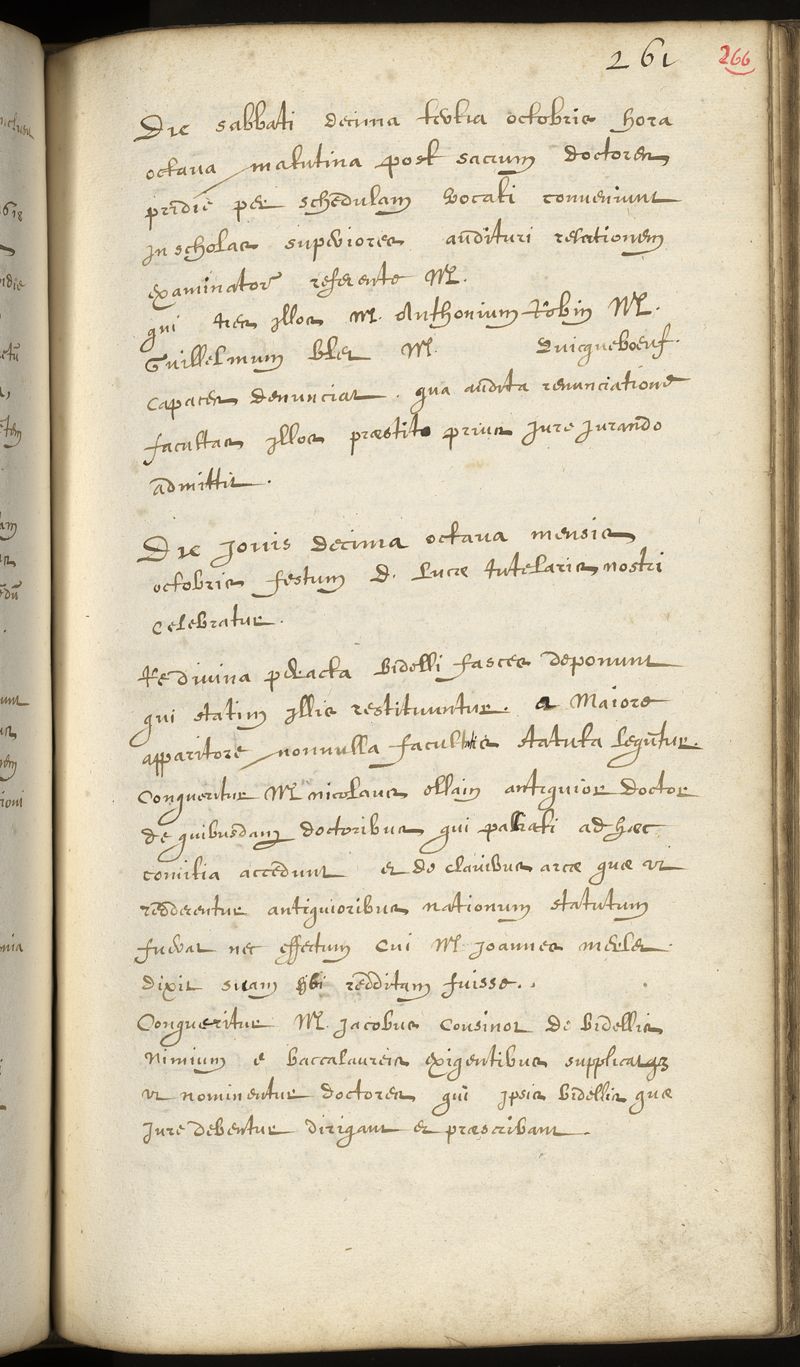 261 266
Die sabbati decima tertia octobris hora
octava matutina post sacrum doctores
pridie per schedulam vocati conveniunt
in scholas superiores audituri relationem
examinator referente M.
qui tres illos M. Anthonium Robin M.
Guillelmum Bles M. Quicqueboeuf.
capaces denunciat. qua audita renunciatione
facultas illos præstito prius jure jurando
admittit.
Die Jovis decima octava mensis
octobris festum D. Lucæ tutelaris nostri
celebratur.
Re divina peracta Bidelli fasces deponunt
qui statim illis restituuntur. a Maiore
apparitore nonnulla facultatis statuta leguntur.
Conqueritur M. nicolaus ellain antiquior doctor
de quibusdam doctoribus qui palliati ad hæc
comitia accedunt et de clavibus arcæ quæ ut
redderentur antiquioribus nationum statutum
fuerat nec effectum cui M. Joannes merlet
dixit suam sibi redditam fuisse.
Conqueritur M. Jacobus Cousinot de Bidellis
nimium e baccalaureis exigentibus supplicatque
ut nominentur doctores qui ipsis Bidellis quæ
jure debentur dirigant et præscribant.